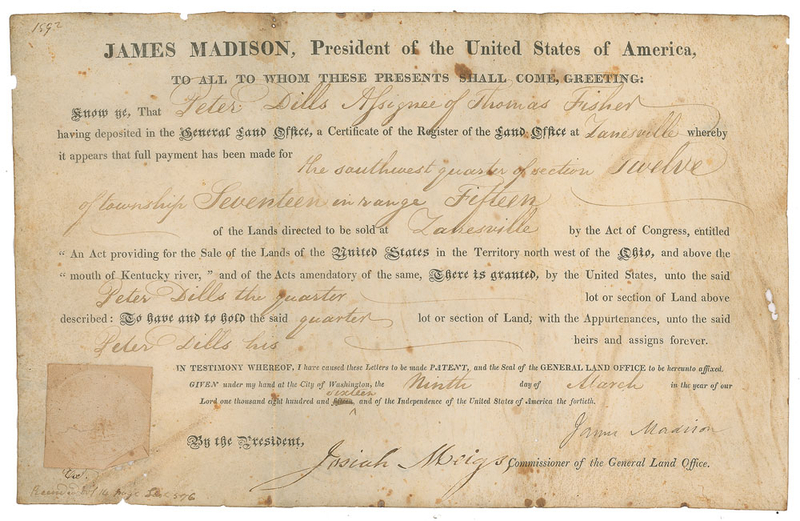 1892
JAMES MADISON, President of the United States of America,
TO ALL TO WHOM THESE PRESENTS SHALL COME, GREETING:
Know ye, That Peter Dills Assignee of Thomas Fisher
having deposited in the General Land Office, a Certificate of the Register of the Land Office at Zanesville whereby
it appears that full payment has been made for the southwest quarter of section Twelve
of township Seventeen in range Fifteen
of the Lands directed to be sold at Zanesville by the Act of Congress, entitled
“ An Act providing for the Sale of the Lands of the United States in the Territory north west of the Ohio, and above the
“ mouth of Kentucky river, ” and of the Acts amendatory of the same, There is granted, by the United States, unto the said
Peter Dills the quarter lot or section of Land above
described: To have and to hold the said quarter lot or section of Land, with the Appurtenances, unto the said
Peter Dills his heirs and assigns forever.
IN TESTIMONY WHEREOF, I have caused these Letters to be made PATENT, and the Seal of the GENERAL LAND OFFICE to be hereunto affixed.
GIVEN under my hand at the City of Washington, the Ninth day of March in the year of our
Lord one thousand eight hundred and fifteen sixteen and of the Independence of the United States of America the fortieth.
James Madison
By the President,
Josiah Meigs, Commissioner of the General Land Office.